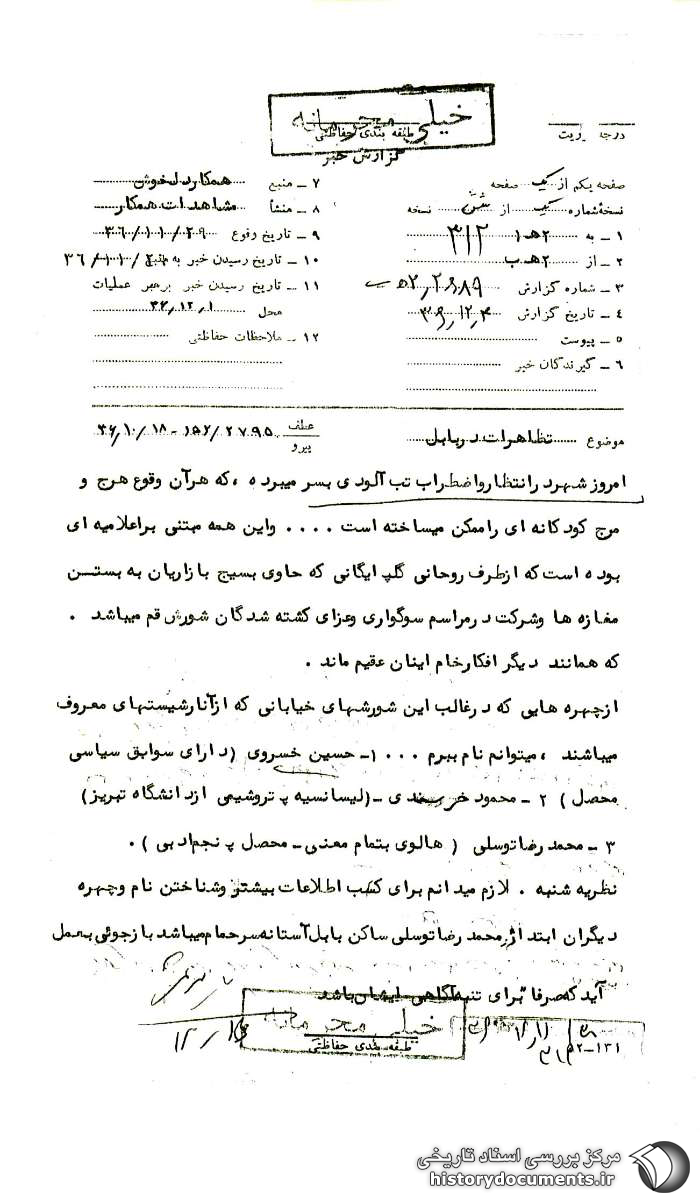 خیلی محرمانه
طبقه بندی حفاظتی
گزارش خبر
درجه
صفحه یکم از یک صفحه
نسخهٔ شماره یک از شش نسخه
۱ - به ۲هـ۱ ۳۱۲
۲ - از ۲هـ ب
۳ - شماره گزارش
۴ - تاریخ گزارش ۳۶,۱۲,۴
۵ - پیوست
۶ - گیرندگان خبر
۷ - منبع همکار دلخوش
۸ - منشأ مشاهدات همکار
۹ - تاریخ وقوع ۳۶/۱۰/۲۹
۱۰ - تاریخ رسیدن خبر به منبع
۱۱ - تاریخ رسیدن خبر برهبر عملیات
محل ۳۶,۱۲,۱
۱۲ - ملاحظات حفاظتی
موضوع تظاهرات دربابل
عطف
پیرو
۳۶,۱۰,۱۸ - ۱۵۲/۲۷۹۵
امروز شهر در انتظار واضطراب تب آلودی بسر میبرده ، که هرآن وقوع هرج و
مرج کودکانه ای را ممکن میساخته است .... واین همه مبتنی براعلامیه ای
بوده است که ازطرف روحانی گلپایگانی که حاوی بسیج بازاریان به بستن
مغازه ها وشرکت درمراسم سوگواری وعزای کشته شدگان شورش قم میباشد .
که همانند دیگر افکارخام اینان عقیم ماند .
ازچهره هایی که درغالب این شورشهای خیابانی که ازآنارشیستهای معروف
میباشند ، میتوانم نام ببرم ... ۱- حسین خسروی (دارای سوابق سیاسی
محصل ) ۲ - محمود خرسندی -(لیسانسیه پتروشیمی ازدانشگاه تبریز)
۳ - محمدرضاتوسلی ( هالوی بتمام معنی - محصل پنجم ادبی ) .
نظریه شنبه . لازم میدانم برای کسب اطلاعات بیشتر وشناختن نام وچهره
دیگران ابتدا از محمدرضاتوسلی ساکن بابل آستانه سرحمام میباشد بازجوئی بعمل
آید که صرفا برای تنبه آگاهی ایشان باشد
خیلی محرمانه
طبقه بندی حفاظتی
۱۲/۱۶
۵۲-۱۳۱
مرکز بررسی اسناد تاریخی
historydocuments.ir